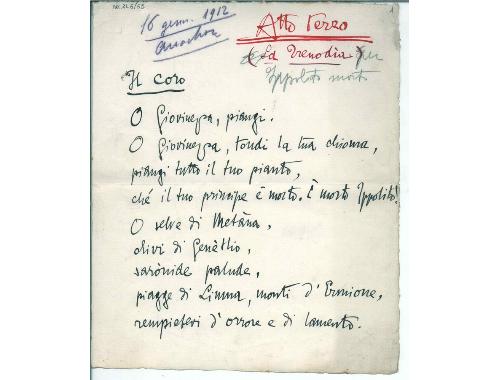 No. 226/53
16 genn. 1912
Arcachon
Atto Terzo
1
(La Trenodìa) per
Ippolito morto
Il Coro
O Giovinezza, piangi.
O Giovinezza, tondi la tua chioma,
piangi tutto il tuo pianto,
ché il tuo principe è morto. È morto Ippolito!
O selve di Metàna,
olivi di Genètlio,
sarònide palude,
piagge di Limna, monti d'Ermione,
rempietevi d'orrore e di lamento.